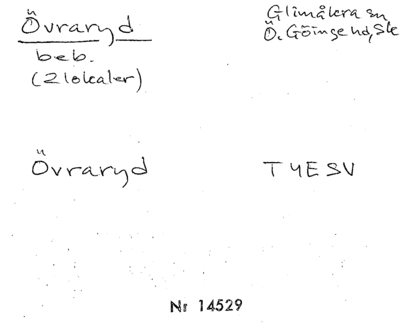 Övraryd
beb.
(2 lokaler)
Glimåkra sn
Ö. Göinge hd, Sk
Övraryd
T 4E SV
Nr 14529